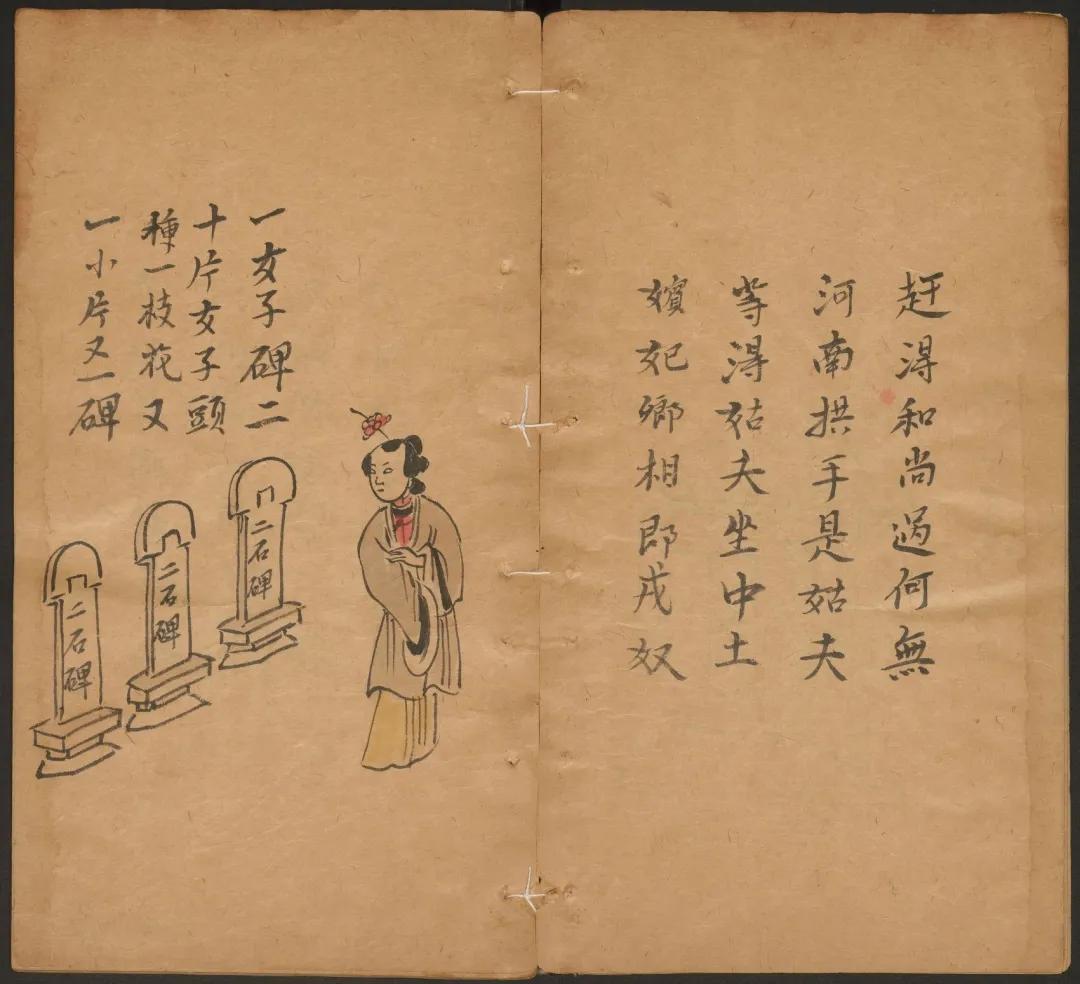 赶得和尚過何無
河南拱手是姑夫
等得姑夫坐中土
嬪妃鄉相即戎奴
一女子碑二
十片女子頭
種一枝花又
一小片又一碑
二石碑
二石碑
二石碑